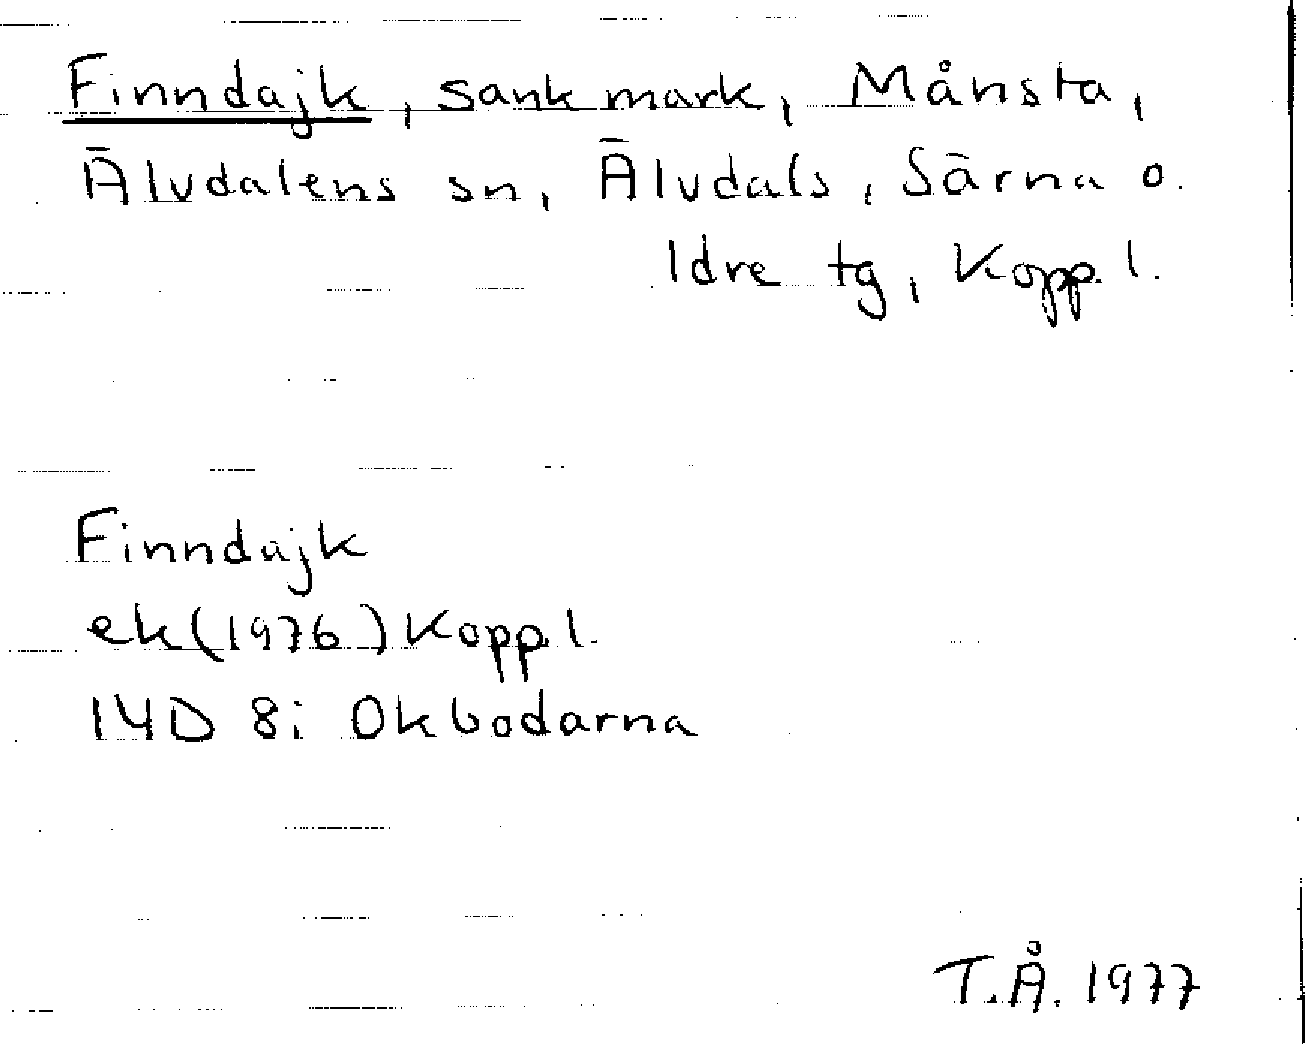 Finndajk, sank mark, Månsta,
Älvdalens sn, Älvdals, Särna o.
Idre tg, Kopp. l.
Finndajk
ek (1976) Kopp l.
14D 8i Okbodarna
T.Å. 1977